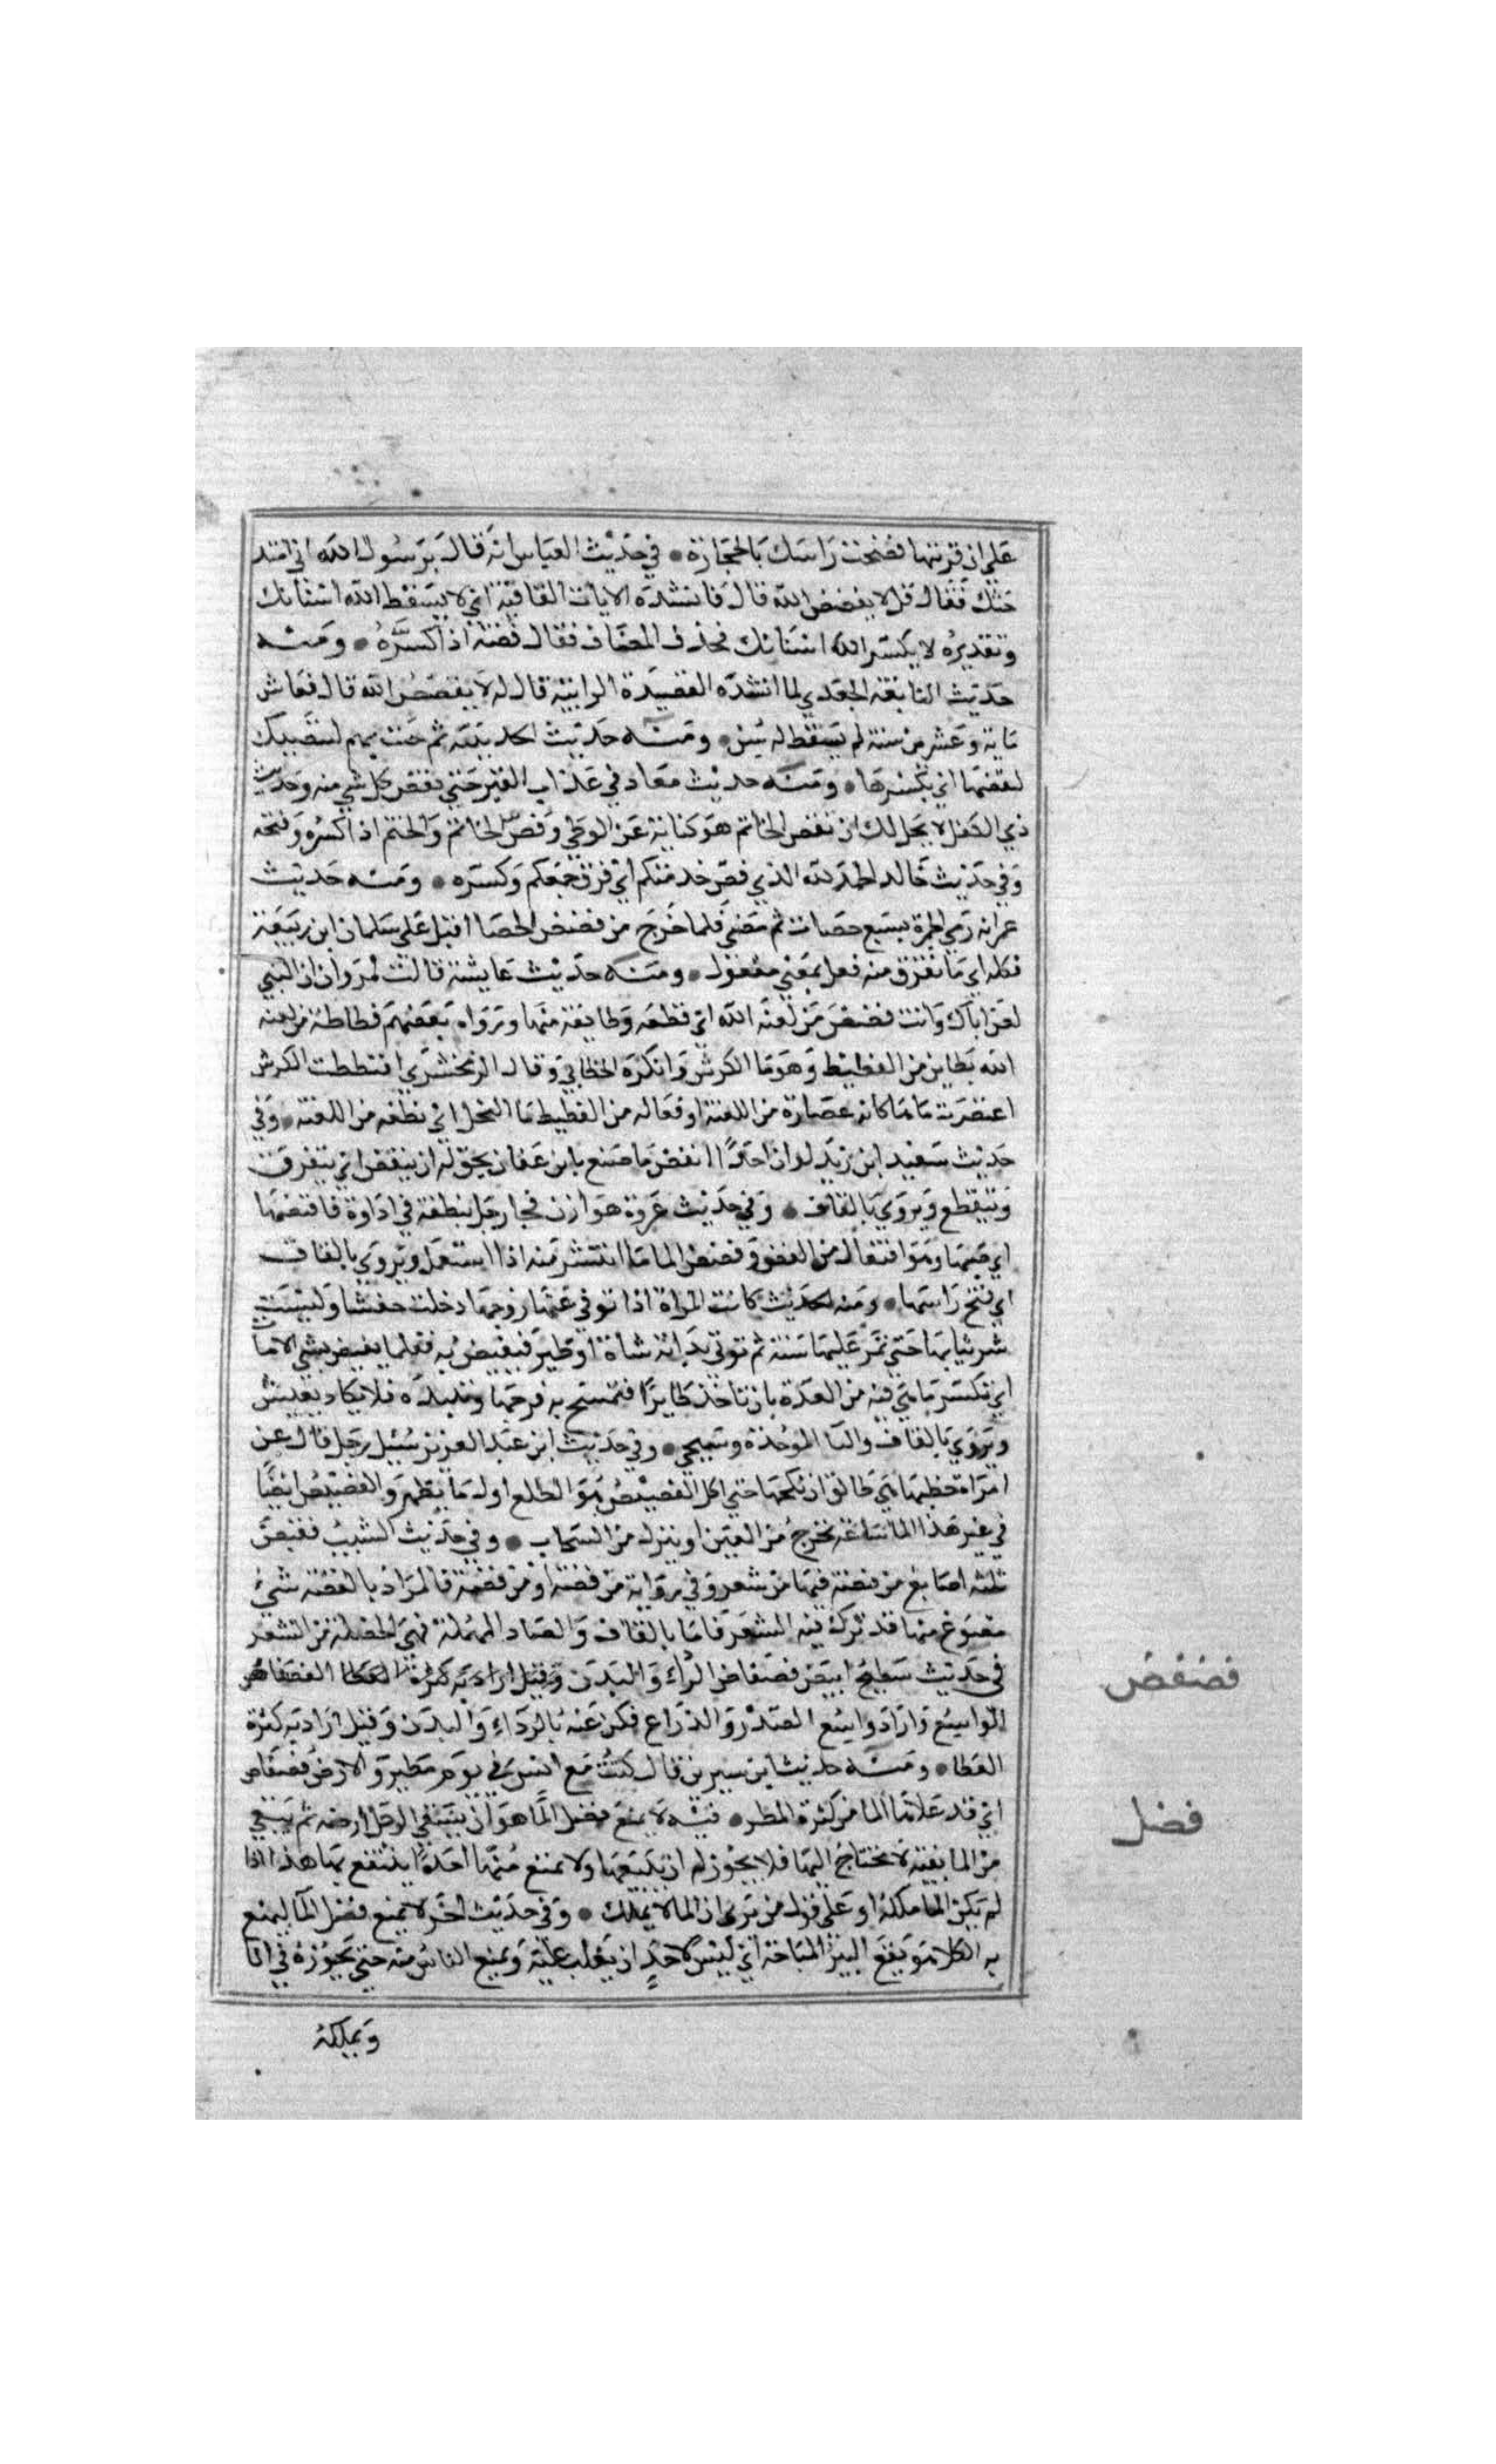 على ان قربتها فضخت راسك بالحجارة • في حديث العباس انه قال يرسول الله اني امتد
حتك فقال قل لا يفضض الله قال فانشده الابيات القافية اني لا يسقط الله اسنانك
وتقديره لا يكسر الله اسنانك فحذف المضاف فقال فضه اذا كسره • ومنه
حديث النابغة الجعدي لما انشده القصيدة الرايية قال له لا يفضض الله قال فعاش
ماية وعشرين سنة لم يسقط له سن • ومنه حديث الحديبية ثم جئت بهم لبيضتك
لتفضها اي تكسرها • ومنه حديث معاد في عذاب القبر حتي يفض كل شي منه وحديث
ذي الكفل لا يحل لك ان تفض الخاتم هو كناية عن الوطي وفض الخاتم والختم اذا كسره وفتحه
وفي حديث خالد الحمد لله الذي فض خدمتكم اي فرق جمعكم وكسره • ومنه حديث
عمر انه رمي الجمرة بسبع حصات ثم مضي فلما خرج من فضض الحصا اقبل على سلمان ابن ربيعة
فكله اي ما تفرق منه فعل بمعني مفعول • ومنه حديث عايشة قالت لمروان ان النبي
لعن اباك وانت فضض من لعنه الله اي قطعه وطايفة منها ورواه بعضهم فظاظة من لعنه
الله بظاين من الفظيظ وهو ما الكرش وانكره الخطابي وقال الزمخشري افتظظت الكرش
اعتصرت ماها كانه عصارة من اللعنة او فعاله من الفظيظ ما الفحل اي نطفه من اللعنة • وفي
حديث سعيد ابن زيد لو ان احدا انفض مما صنع بابن عفان يحق له ان ينفض اي يتفرق
ويتقطع ويروي بالقاف • وفي حديث غزوة هوازن فجا رجل بنطفة في اداوة فافتضها
اي صبها وهو افتعال من الفض وفضض الما ما انتشر منه اذا استعمل ويروي بالقاف
اي فتح راسها • ومنه الحديث كانت المراة اذا توفي عنها زوجها دخلت حفشا ولبست
شر ثيابها حتي تمر عليها سنة ثم توتي بدابة شاة او طير فتفتض به فقلما تفتض بشي الا مات
اي تكسر ما هي فيه من العدة بان تاخذ طايرا فتمسح به فرجها وتنبذه فلا يكاد يعيش
ويروي بالقاف والبا الموحدة وسيجي • وفي حديث ابن عبد العزيز سئيل رجل قال عن
امراة خطبها هي طالق ان نكحها حتي اكل الفضيض هو الطلع اول ما يظهر والفضيض ايضا
في غير هذا الما ساعة يخرج من العين او ينزل من السحاب • وفي حديث الشيب فقبض
ثلثه اصابع من فضة فيها من شعر وفي رواية من فضة او من قصة فالمراد بالفضة شي
مصنوع منها قد ترك فيه الشعر فاما بالقاف والصاد المهملة فهي الخصلة من الشعر
في حديث سطيح ابيض فضفاض الراء والبدن وقيل اراد به كثرة العطا الفضفاض
الواسع واراد واسع الصدر والذراع فكن عنه بالرداء والبدن وقيل اراد به كثرة
العطا • ومنه حديث ابن سيرين قال كنت مع انس في يوم مطير والارض فضفاض
اي قد علاها الما من كثرة المطر • فيه لا يمنع فضل الما هو ان يسقي الرجل ارضه ثم يبقي
من الما بقية لا يحتاج اليها فلا يجوز له ان يبيعها ولا يمنع منها احدا ينتفع بها هذا اذا
لم يكن الما ملكه او على قول من يرى ان الما لا يملك • وفي حديث اخر لا يمنع فضل الما ليمنع
به الكلا هو يقع البير المباحة اي ليس لاحد ان يغلب عليه ويمنع الناس منه حتي يحوزه في انا
ويملكه
فضفض
فضل